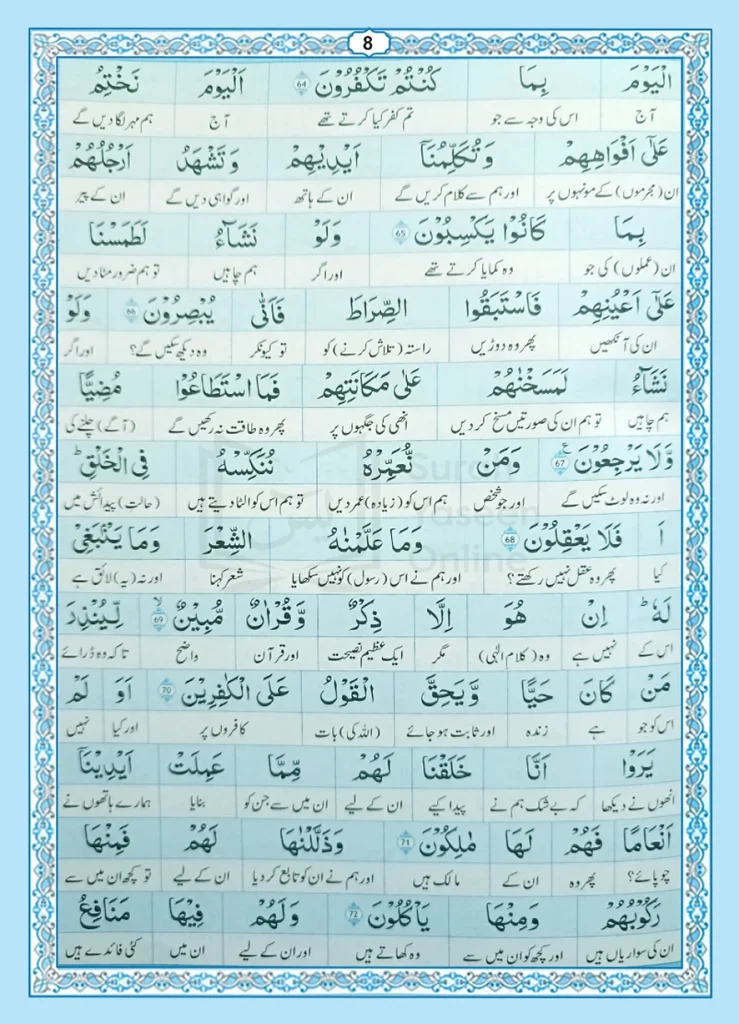 8
اَلْيَوْمَ بِمَا كُنْتُمْ تَكْفُرُوْنَ 64 اَلْيَوْمَ نَخْتِمُ
آج اس کی وجہ سے جو تم کفر کیا کرتے تھے آج ہم مہر لگا دیں گے
عَلٰٓى اَفْوَاهِهِمْ وَتُكَلِّمُنَاۤ اَيْدِيْهِمْ وَتَشْهَدُ اَرْجُلُهُمْ
ان (مجرموں) کے مونہوں پر اور ہم سے کلام کریں گے ان کے ہاتھ اور گواہی دیں گے ان کے پیر
بِمَا كَانُوْا يَكْسِبُوْنَ 65 وَلَوْ نَشَآءُ لَطَمَسْنَا
ان (عملوں) کی جو وہ کمایا کرتے تھے اور اگر ہم چاہیں تو ہم ضرور مٹا دیں
عَلٰٓى اَعْيُنِهِمْ فَاسْتَبَقُوا الصِّرَاطَ فَاَنّٰى يُبْصِرُوْنَ 66 وَلَوْ
ان کی آنکھیں پھر وہ دوڑیں راستہ (تلاش کرنے) کو تو کیونکر وہ دیکھ سکیں گے؟ اور اگر
نَشَآءُ لَمَسَخْنٰهُمْ عَلٰى مَكَانَتِهِمْ فَمَا اسْتَطَاعُوْا مُضِيًّا
ہم چاہیں تو ہم ان کی صورتیں مسخ کر دیں انھی کی جگہوں پر پھر وہ طاقت نہ رکھیں گے (آگے) چلنے کی
وَّلَا يَرْجِعُوْنَ 67 ع وَمَنْ نُّعَمِّرْهُ نُنَكِّسْهُ فِى الْخَلْقِ ط
اور نہ وہ لوٹ سکیں گے اور جو شخص ہم اس کو (زیادہ) عمر دیں تو ہم اس کو الٹا دیتے ہیں (حالتِ) پیدائش میں
اَ فَلَا يَعْقِلُوْنَ 68 وَمَا عَلَّمْنٰهُ الشِّعْرَ وَمَا يَنْۢبَغِىْ
کیا پھر وہ عقل نہیں رکھتے؟ اور ہم نے اس (رسول) کو نہیں سکھایا شعر کہنا اور نہ (یہ) لائق ہے
لَهٗ ط اِنْ هُوَ اِلَّا ذِكْرٌ وَّقُرْاٰنٌ مُّبِيْنٌ 69 لا لِّيُنْذِرَ
اس کے نہیں ہے وہ (کلام الٰہی) مگر ایک عظیم نصیحت اور قرآن واضح تاکہ وہ ڈرائے
مَنْ كَانَ حَيًّا وَّيَحِقَّ الْقَوْلُ عَلَى الْكٰفِرِيْنَ 70 اَوَ لَمْ
اس کو جو ہے زندہ اور ثابت ہو جائے (اللہ کی) بات کافروں پر اور کیا نہیں
يَرَوْا اَنَّا خَلَقْنَا لَهُمْ مِّمَّا عَمِلَتْ اَيْدِيْنَاۤ
انھوں نے دیکھا کہ بے شک ہم نے پیدا کیے ان کے لیے ان میں سے جن کو بنایا ہمارے ہاتھوں نے
اَنْعَامًا فَهُمْ لَهَا مٰلِكُوْنَ 71 وَذَلَّلْنٰهَا لَهُمْ فَمِنْهَا
چوپائے؟ پھر وہ ان کے مالک ہیں اور ہم نے ان کو تابع کر دیا ان کے لیے تو کچھ ان میں سے
رَكُوْبُهُمْ وَمِنْهَا يَاْكُلُوْنَ 72 وَلَهُمْ فِيْهَا مَنَافِعُ
ان کی سواریاں ہیں اور کچھ کو ان میں سے وہ کھاتے ہیں اور ان کے لیے ان میں کئی فائدے ہیں
Surah
Yaseen
Online